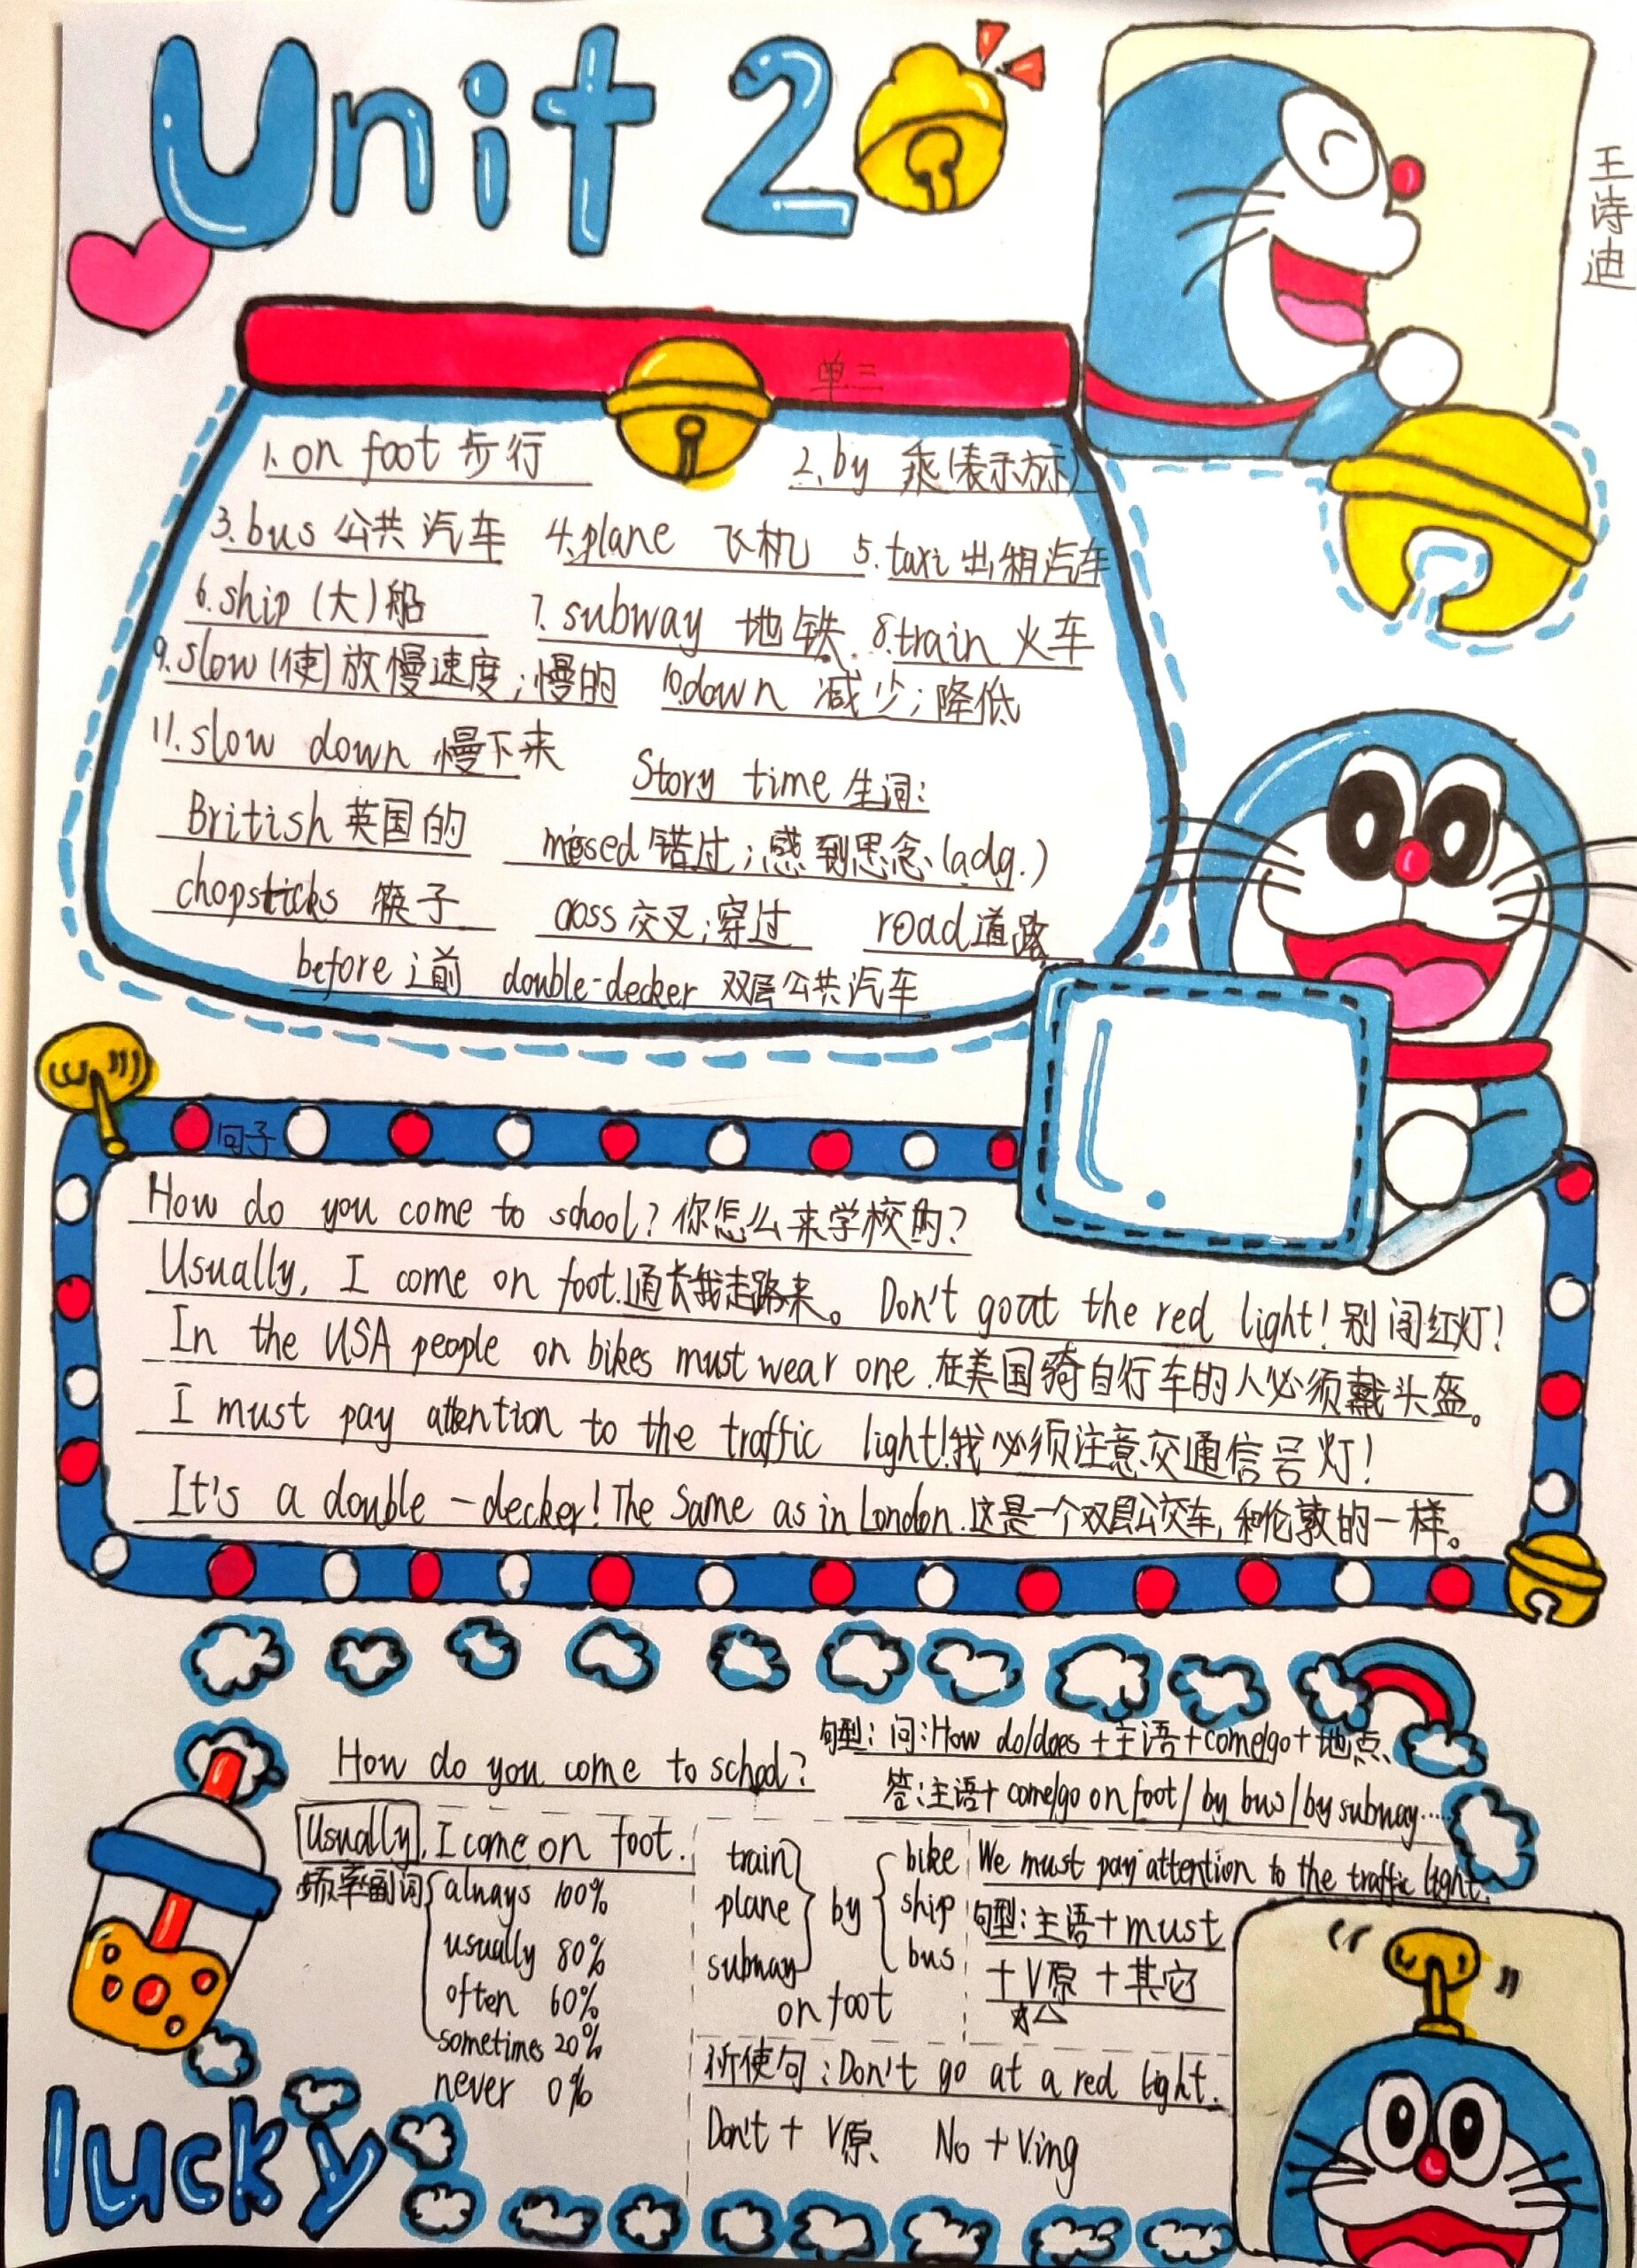 Unit 2
王诗迪
单三
1. on foot 步行 2. by 乘(表示方式)
3. bus 公共汽车 4. plane 飞机 5. taxi 出租汽车
6. ship (大)船 7. subway 地铁 8. train 火车
9. slow (使)放慢速度;慢的 10. down 减少;降低
11. slow down 慢下来
Story time 生词:
British 英国的 missed 错过;感到思念 (adg.)
chopsticks 筷子 cross 交叉;穿过 road 道路
before 之前 double-decker 双层公共汽车
句子
How do you come to school? 你怎么来学校的?
Usually, I come on foot. 通长我走路来。 Don't goat the red light! 别闯红灯!
In the USA people on bikes must wear one. 在美国骑自行车的人必须戴头盔。
I must pay attention to the traffic light! 我必须注意交通信号灯!
It's a double-decker! The same as in London. 这是一个双层公交车, 和伦敦的一样。
句型: 问: How do/does + 主语 + come/go + 地点
How do you come to school?
答: 主语 + come/go on foot / by bus / by subway ······
Usually, I come on foot.
频率副词
always 100%
usually 80%
often 60%
sometimes 20%
never 0%
train
plane
subway
by
bike
ship
bus
on foot
We must pay attention to the traffic light.
句型: 主语 + must
+ V原 + 其它
祈使句: Don't go at a red light.
Don't + V原 No + Ving
lucky